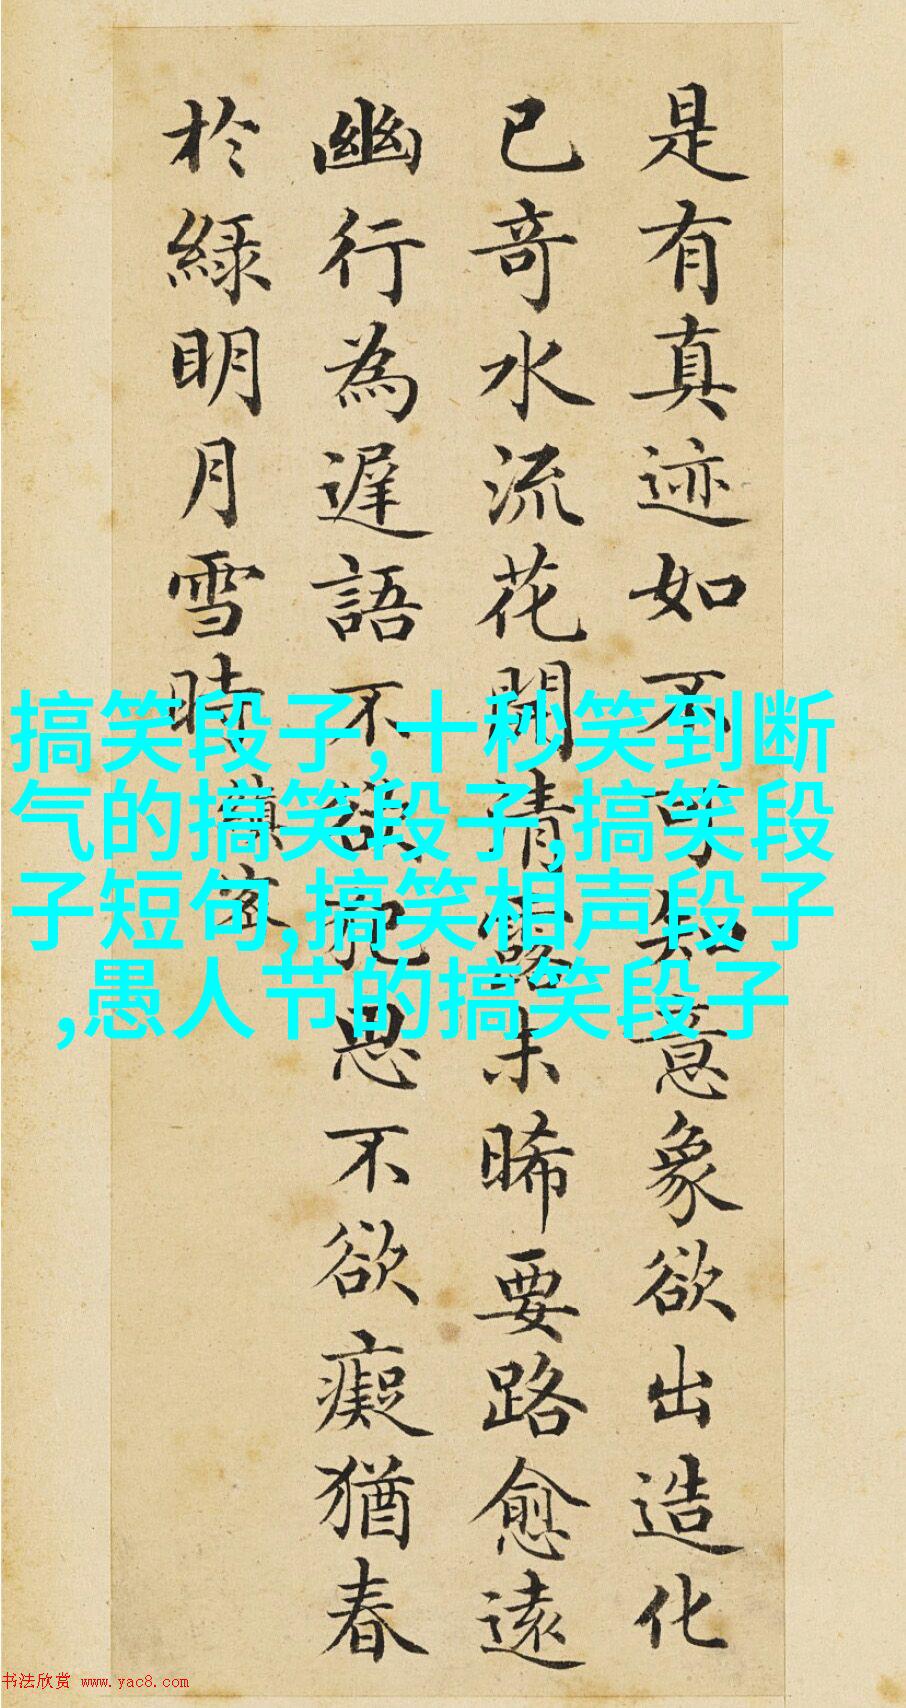 是有真迹如不可知意象欲出造化
已奇水流花開清露未晞要路愈遠
幽行為遲語不欲犯思不欲癡猶春
於綠明月雪時
縝密
搞笑段子,十秒笑到断
气的搞笑段子,搞笑段
子短句,搞笑相声段子
,愚人节的搞笑段子
书法欣赏 www.yac8.com